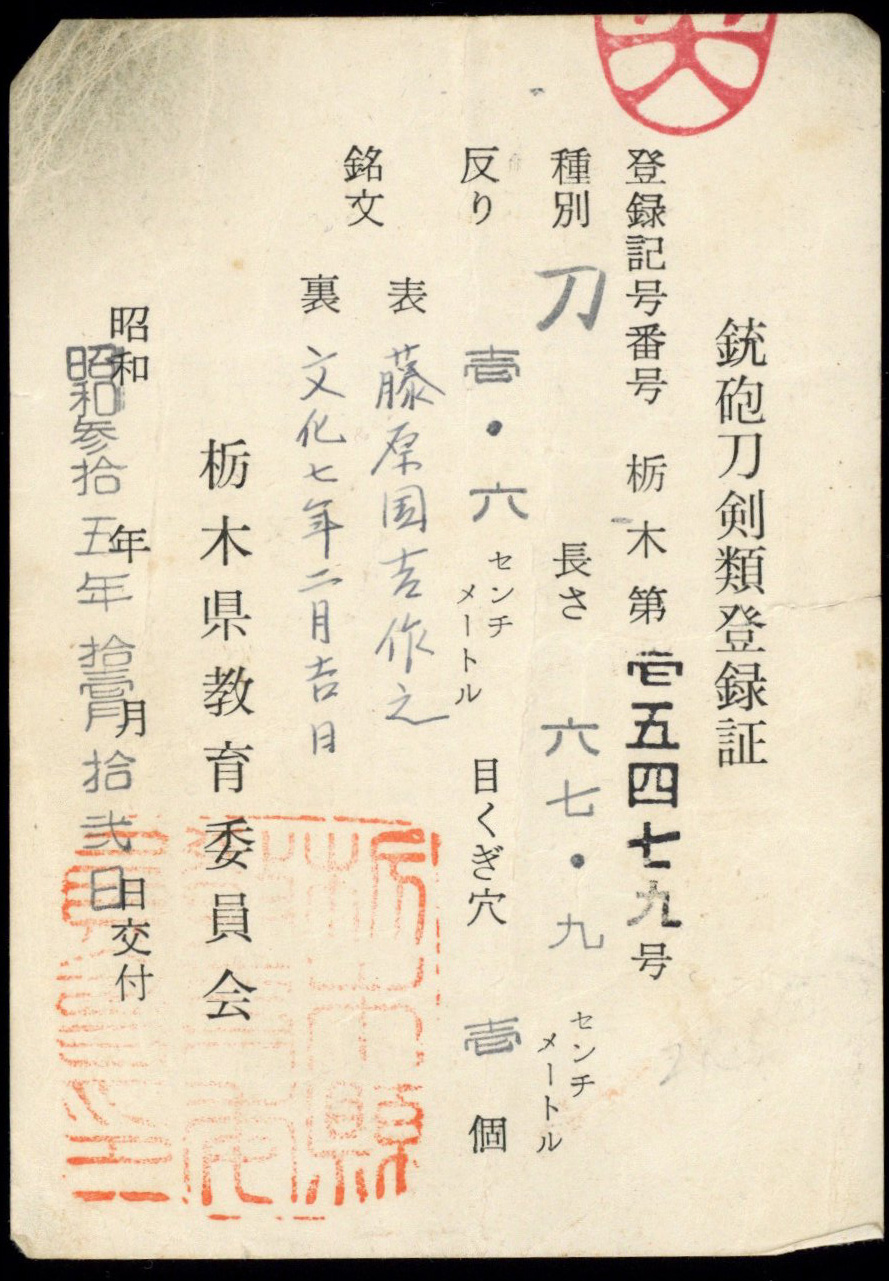 銃砲刀剣類登録証
登録記号番号 栃木第壱五四七九号
種別 刀 長さ 六七・九 センチメートル
反り 壱・六 センチメートル 目くぎ穴 壱 個
銘文 表 藤原国吉作之
裏 文化七年二月吉日
栃木県教育委員会
昭和 年 月 日交付
昭和参拾五年拾壹月拾弐日